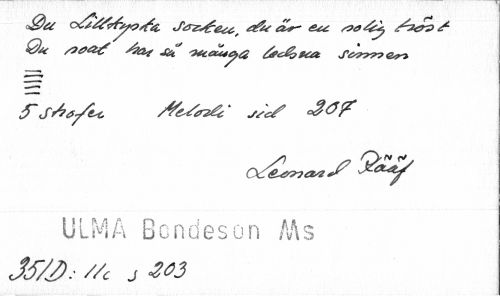 Du Lilltyska socken, du är en rolig tröst
Du roat har så många ledsna sinnen
5 strofer Melodi sid 207
Leonard Rääf
ULMA Bondeson Ms
351D: 11c s 203